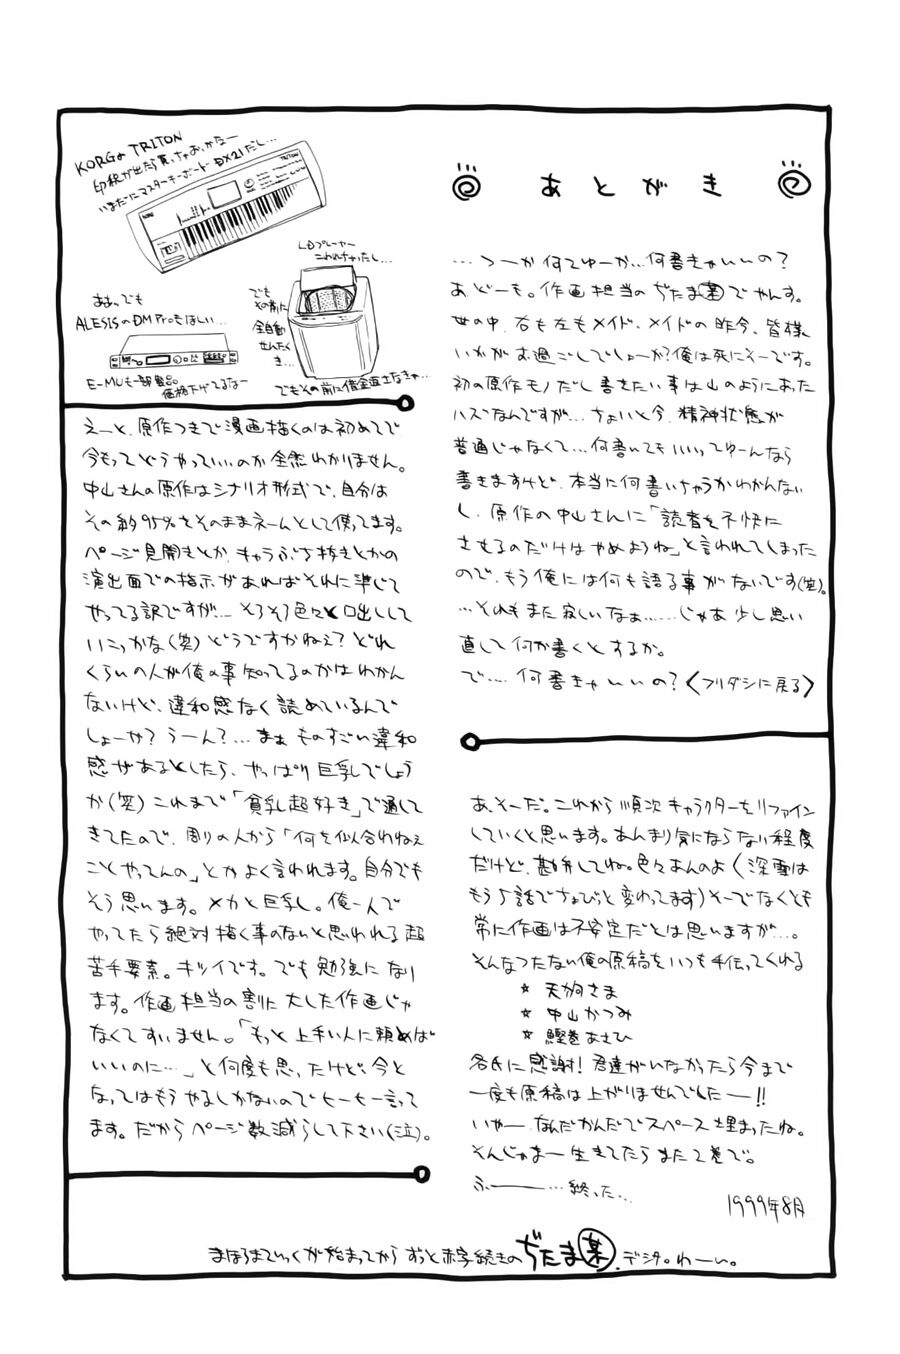 あとがき
…つーか何てゆーか…何書きゃいいの？
あ、どーも。作画担当のぢたま㋱でやんす。
世の中、右も左もメイド、メイドの昨今、皆様
いかがお過ごしでしょーか？俺は死にそーです。
初の原作モノだし書きたい事は山のようにあった
ハズなんですが…ちょいと今、精神状態が
普通じゃなくて…何書いてもいいってゆーんなら
書きますけど、本当に何書いちゃうかわかんない
し、原作の中山さんに「読者を不快に
させるのだけはやめようね」と言われてしまった
ので、もう俺には何も語る事がないです(笑)。
…それもまた寂しいなぁ……じゃあ少し思い
直して何か書くとするか。
で…何書きゃいいの？〈フリダシに戻る〉
KORGのTRITON
印税が出たら買っちゃおっかなー
いまだにマスターキーボードDX21だし…
LDプレーヤー
こわれちゃったし…
ああ、でも
ALESISのDM Proもほしい…
でも
その前に
全自動
せんたく
き…
E-MUも一部製品
価格下げてるなー
でもその前に借金返さなきゃ…
えーと、原作つきで漫画描くのは初めてで
今もってどうやっていいのか全然わかりません。
中山さんの原作はシナリオ形式で、自分は
その約95%をそのままネームとして使ってます。
ページ見開きとか、キャラぶち抜きとかの
演出面での指示があればそれに準じて
やってる訳ですが…そろそろ色々と口出しして
いこっかな(笑)どうですかねぇ？どれ
くらいの人が俺の事知ってるのかはわかん
ないけど、違和感なく読めているんで
しょーか？うーん？…まぁものすごい違和
感があるとしたら、やっぱり巨乳でしょう
か(笑)これまで「貧乳超好き」で通して
きてたので、周りの人から「何を似合わねぇ
ことやってんの」とかよく言われます。自分でも
そう思います。メカと巨乳。俺一人で
やってたら絶対描く事のないと思われる超
苦手要素。キツイです。でも勉強になり
ます。作画担当の割に大した作画じゃ
なくてすいません。「もっと上手い人に頼めば
いいのに…」と何度も思ったけど、今と
なってはもうやるしかないのでヒーヒー言って
ます。だからページ数減らして下さい(泣)。
あ、そーだ。これから順次キャラクターをリファイン
していくと思います。あんまり気にならない程度
だけど、勘弁してね。色々あんのよ(深雪は
もう5話でちょびっと変わってます)そーでなくとも
常に作画は不安定だとは思いますが…。
そんなつたない俺の原稿をいつも手伝ってくれる
☆ 天朔さま
☆ 中山かつみ
☆ 鰹巻あさひ
各氏に感謝！君達がいなかったら今まで
一度も原稿は上がりませんでしたー!!
いやーなんだかんだでスペース埋まったね。
そんじゃまー生きてたらまた2巻で。
ふー―…終った…
1999年8月
まほろまてぃっくが始まってからずっと赤字続きのぢたま㋱。デシタ。わーい。